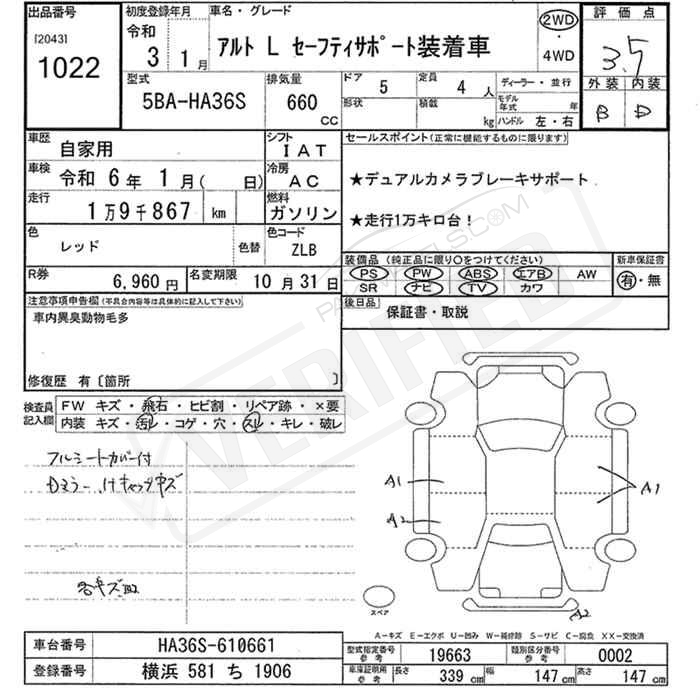 出品番号
[2043]
1022
初度登録年月
令和
3 1月
車名・グレード
アルト L セーフティサポート装着車
2WD
・
4WD
評価点
3.5
外装 内装
B D
型式
5BA-HA36S
排気量
660
CC
ドア 5
形状
定員 4 人
積載 kg
ディーラー・並行
モデル年式 年
ハンドル 左・右
車歴
自家用
シフト
IAT
車検
令和 6年 1月( 日)
冷房
AC
走行
1万9千867 km
燃料
ガソリン
色
レッド
色替
色コード
ZLB
R券 6,960円
名変期限 10月31日
セールスポイント(正常に機能するものに限ります)
★デュアルカメラブレーキサポート
★走行1万キロ台！
装備品(純正品に限り○をつけてください)
PS PW ABS エアB AW
SR ナビ TV カワ
新車保証書
有・無
後日品
保証書・取説
注意事項申告欄(不具合内容等は具体的に記入して下さい)
車内異臭動物毛多
修復歴 有〔箇所 〕
検査員記入欄
FW キズ・飛石・ヒビ割・リペア跡・×要
内装 キズ・汚レ・コゲ・穴・スレ・キレ・破レ
フルシートカバー付
Dミラー
A1
A1
A2
A2
スペア
A－キズ E－エクボ U－凹み W－補修跡 S－サビ C－腐食 XX－交換済
車台番号 HA36S-610661
登録番号 横浜 581 ち 1906
型式指定番号 参考 19663
類別区分番号 参考 0002
車庫証明所 参考 長さ 339 cm 幅 147 cm 高さ 147 cm
VERIFIED